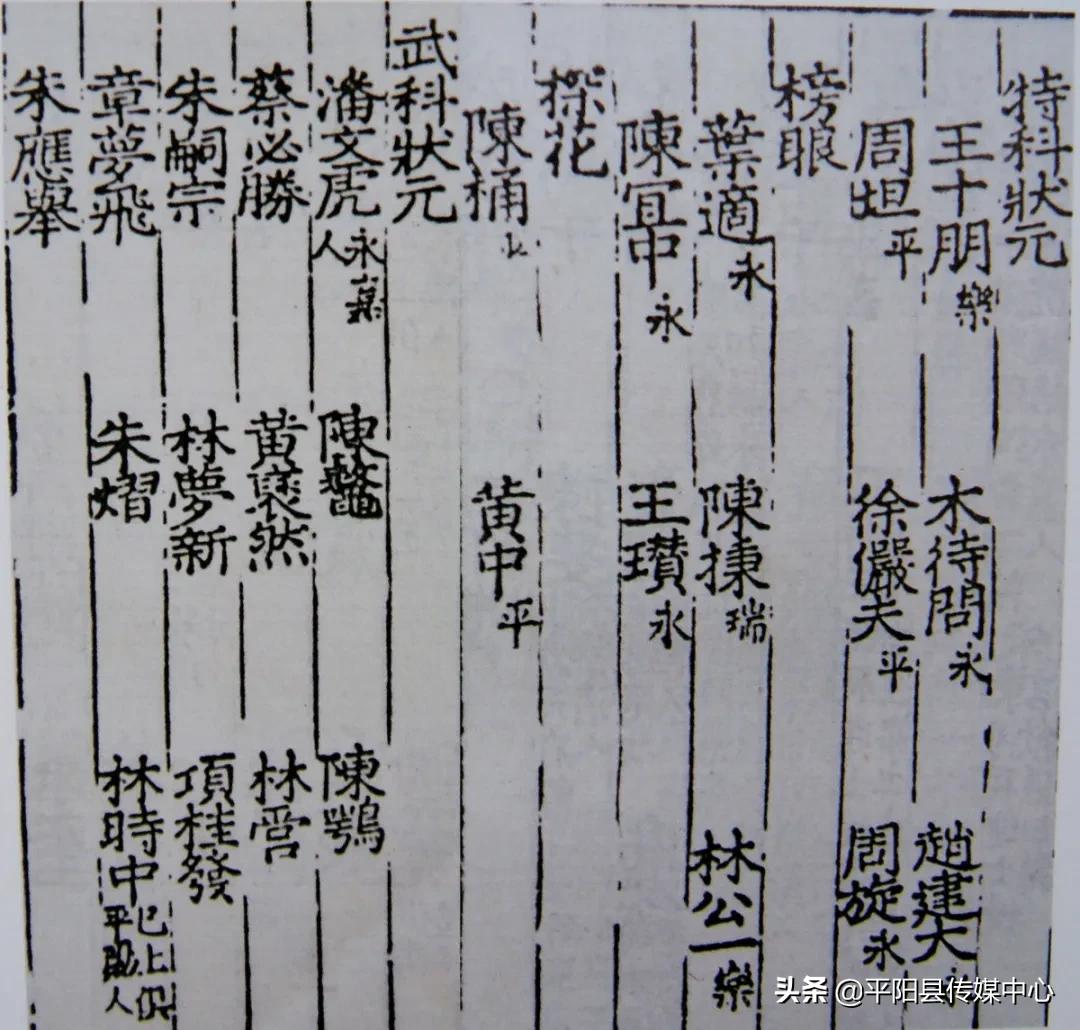 特科狀元
王十朋樂 木待問永 趙建大
周坦平 徐儼夫平 周旋永
榜眼
葉適永 陳㨗瑞 林公一樂
陳宜中永 王瓚永
探花
陳桶 黃中平
武科狀元
潘文虎永嘉人 陳鼇 陳鶚
蔡必勝 黃裦然 林管
朱嗣宗 林夢新 項桂發
章夢飛 朱熠 林時中已上俱平陽人
朱應舉
头条 @平阳县传媒中心